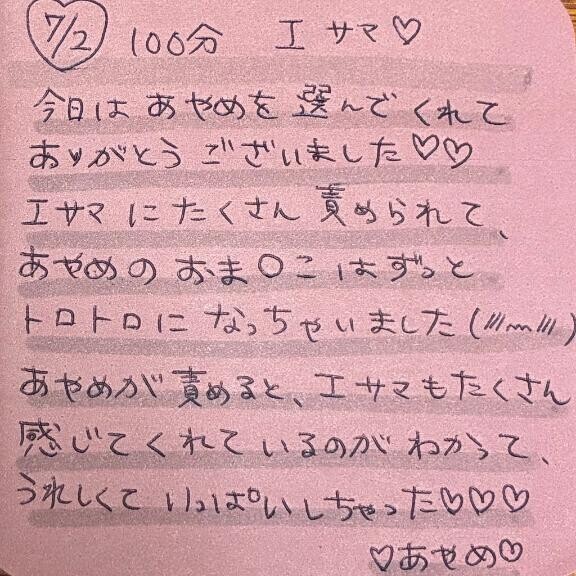 7/2 100分 エサマ♡
今日は あやめを 選んで くれて
ありがとう ございました♡♡
エサマ に たくさん 責められて、
あやめの おま〇こ は ずっと
トロトロに なっちゃいました(///﹏///)
あやめが 責めると、エサマも たくさん
感じて くれて いるのが わかって、
うれしくて いっぱいしちゃった♡♡♡
♡あやめ♡